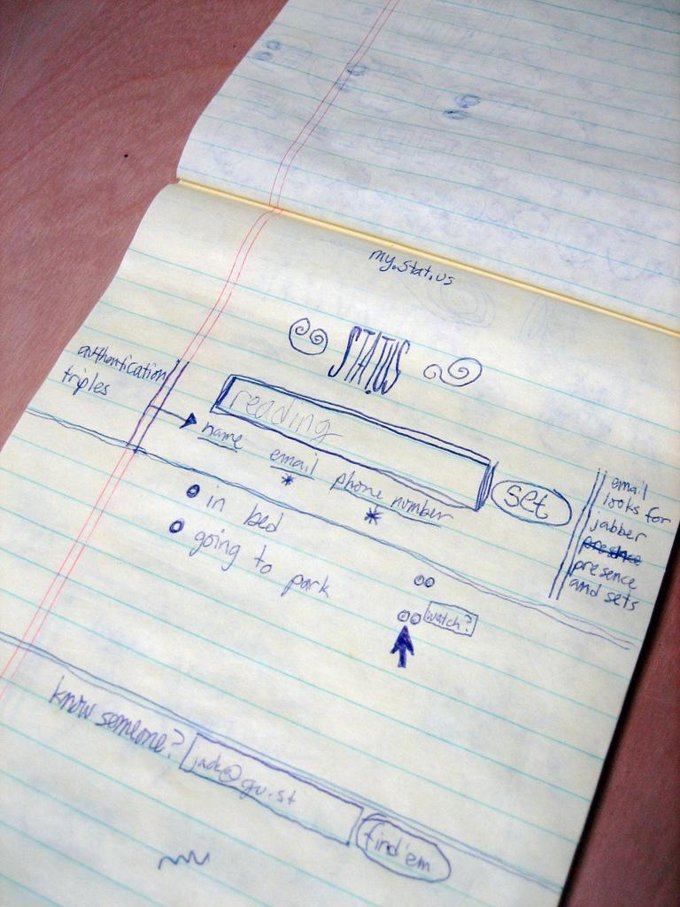 my.stat.us
STATUS
authentication
triples
reading
name email phone number
set
email
looks for
jabber
presence
and sets
in bed
going to park
watch?
know someone?
jack@gu.st
find'em